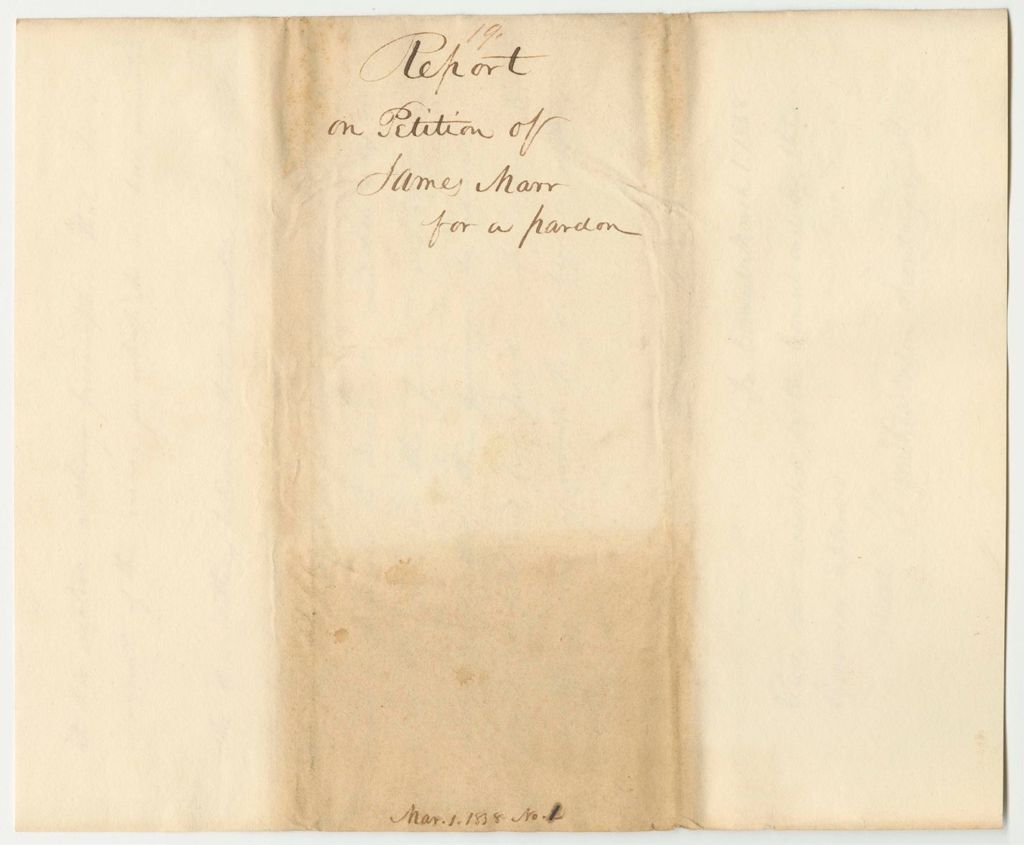 19.
Report
on Petition of
James Marr
for a pardon
Mar. 1. 1838 No. 1